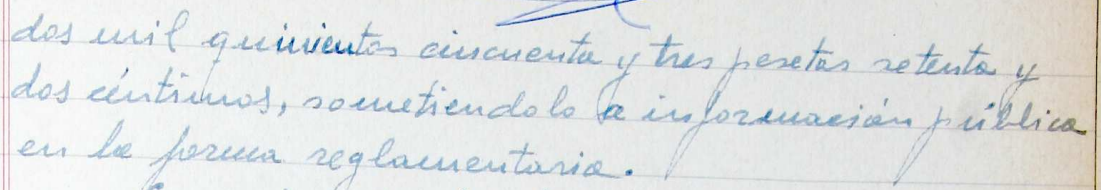 dos mil quinientas cincuenta y tres pesetas setenta y
dos céntimos, sometiendolo a información pública
en la forma reglamentaria.